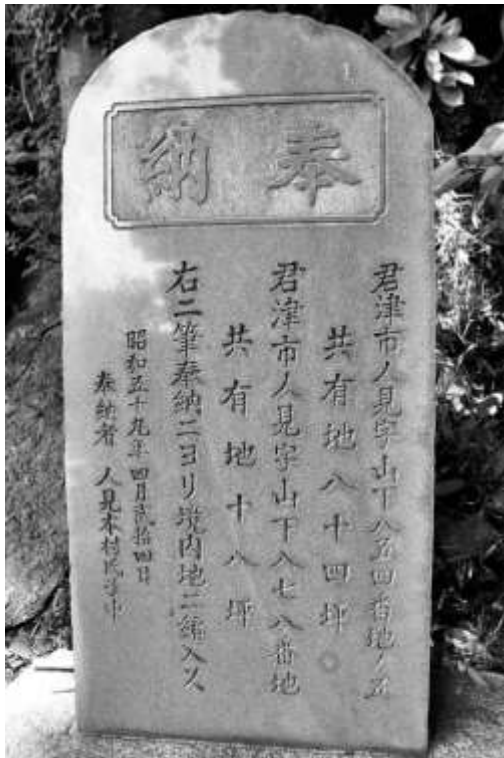 奉納
君津市人見字山下八五四番地ノ五
共有地八十四坪
君津市人見字山下八七八番地
共有地十八坪
右二筆奉納ニヨリ境内地ニ編入ス
昭和五十九年四月弐拾四日
奉納者 人見本村氏子中